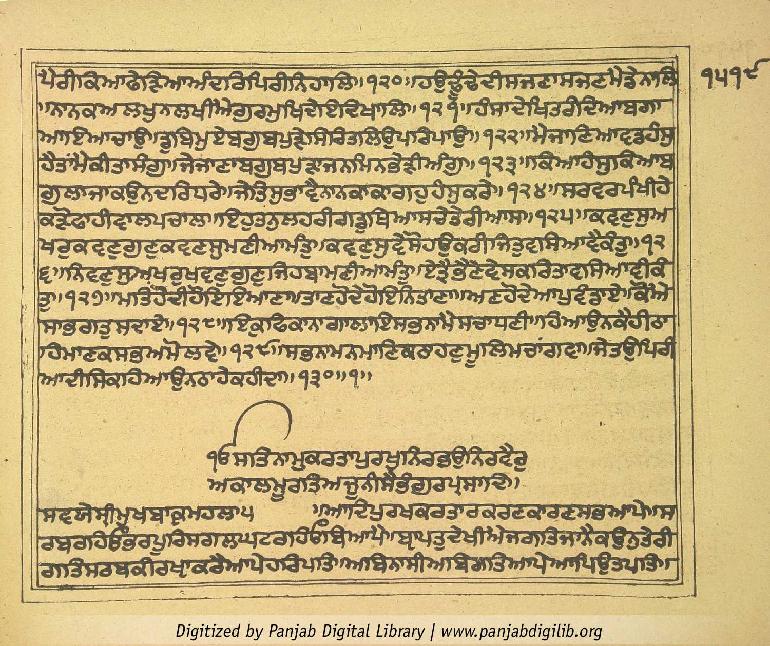 ਪੈਰੀਕਿਆਫੇੜਿਆਅੰਦਰਿਪਿਰੀਨਿਹਾਲਿ॥੧੨੦॥ਹਉਢੂਢੇਦੀਸਜਣਾਸਜਣਮੈਡੇਨਾਲਿ ੧੫੧੯
॥ਨਾਨਕਅਲਖੁਨਲਖੀਐਗੁਰਮੁਖਿਦੇਇਦਿਖਾਲਿ॥੧੨੧॥ਹੰਸਾਦੇਖਿਤਰੀਦਿਆਬਗਾ
ਆਇਆਚਾਉ॥ਡੁਬਿਮੁਏਬਗਬਪੁੜੇਸਿਰਿਤਲਿਉਪਰਿਪਾਉ॥੧੨੨॥ਮੈਜਾਣਿਆਵਡਹੰਸੁ
ਹੈਤਾਮੈਕੀਤਾਸੰਗੁ॥ਜੇਜਾਣਾਬਗੁਬਪੁੜਾਜਨਮਿਨਭੇੜੀਅੰਗੁ॥੧੨੩॥ਕਿਆਹੰਸੁਕਿਆਬ
ਗੁਲਾਜਾਕਉਨਦਰਿਧਰੇ॥ਜੇਤਿਸੁਭਾਵੈਨਾਨਕਾਕਾਗਹੁਹੰਸੁਕਰੇ॥੧੨੪॥ਸਰਵਰਪੰਖੀਹੇ
ਕੜੋਫਾਹੀਵਾਲਪਚਾਸ॥ਇਹੁਤਨੁਲਹਰੀਗਡੁਥਿਆਸਚੇਤੇਰੀਆਸ॥੧੨੫॥ਕਵਣੁਸੁਅ
ਖਰੁਕਵਣੁਗੁਣੁਕਵਣੁਸੁਮਣੀਆਮੰਤੁ॥ਕਵਣੁਸੁਵੇਸੋਹਉਕਰੀਜਿਤੁਵਸਿਆਵੈਕੰਤੁ॥੧੨
੬॥ਨਿਵਣੁਸੁਅਖਰੁਖਵਣੁਗੁਣੁਜਿਹਬਾਮਣੀਆਮੰਤੁ॥ਏਤ੍ਰੈਭੈਣੇਵੇਸਕਰਿਤਾਵਸਿਆਵੀਕੰ
ਤੁ॥੧੨੭॥ਮਤਿਹੋਦੀਹੋਇਇਆਣਾ॥ਤਾਣਹੋਦੇਹੋਇਨਿਤਾਣਾ॥ਅਣਹੋਦੇਆਪੁਵੰਡਾਏ॥ਕੋਐ
ਸਾਭਗਤੁਸਦਾਏ॥੧੨੮॥ਇਕੁਫਿਕਾਨਗਾਲਾਇਸਭਨਾਮੈਸਚਾਧਣੀ॥ਹਿਆਉਨਕੈਹੀਠਾ
ਹਿਮਾਣਕਸਭਅਮੋਲਵੇ॥੧੨੯॥ਸਭਨਾਮਨਮਾਣਿਕਠਾਹਣੁਮੂਲਿਮਚਾਂਗਵਾ॥ਜੇਤਉਪਿਰੀ
ਆਦੀਸਿਕਹਿਆਉਨਠਾਹੇਕਹੀਦਾ॥੧੩੦॥੧॥
ੴਸਤਿਨਾਮੁਕਰਤਾਪੁਰਖੁਨਿਰਭਉਨਿਰਵੈਰੁ
ਅਕਾਲਮੂਰਤਿਅਜੂਨੀਸੈਭੰਗੁਰਪ੍ਰਸਾਦਿ॥
ਸਵਯੇਸ੍ਰੀਮੁਖਬਾਕ੍ਯਮਹਲਾ੫ ॥ਆਦਿਪੁਰਖਕਰਤਾਰਕਰਣਕਾਰਣਸਭਆਪੇ॥ਸ
ਰਬਰਹਿਓਭਰਪੂਰਿਸਗਲਘਟਰਹਿਓਬਿਆਪੇ॥ਬ੍ਯਾਪਤੁਦੇਖੀਐਜਗਤਿਜਾਨੈਕਉਨੁਤੇਰੀ
ਗਤਿਸਰਬਕੀਰਖ੍ਯਾਕਰੈਆਪੇਹਰਿਪਤਿ॥ਅਬਿਨਾਸੀਅਬਿਗਤਆਪੇਆਪਿਉਤਪਤਿ॥
Digitized by Panjab Digital Library | www.panjabdigilib.org